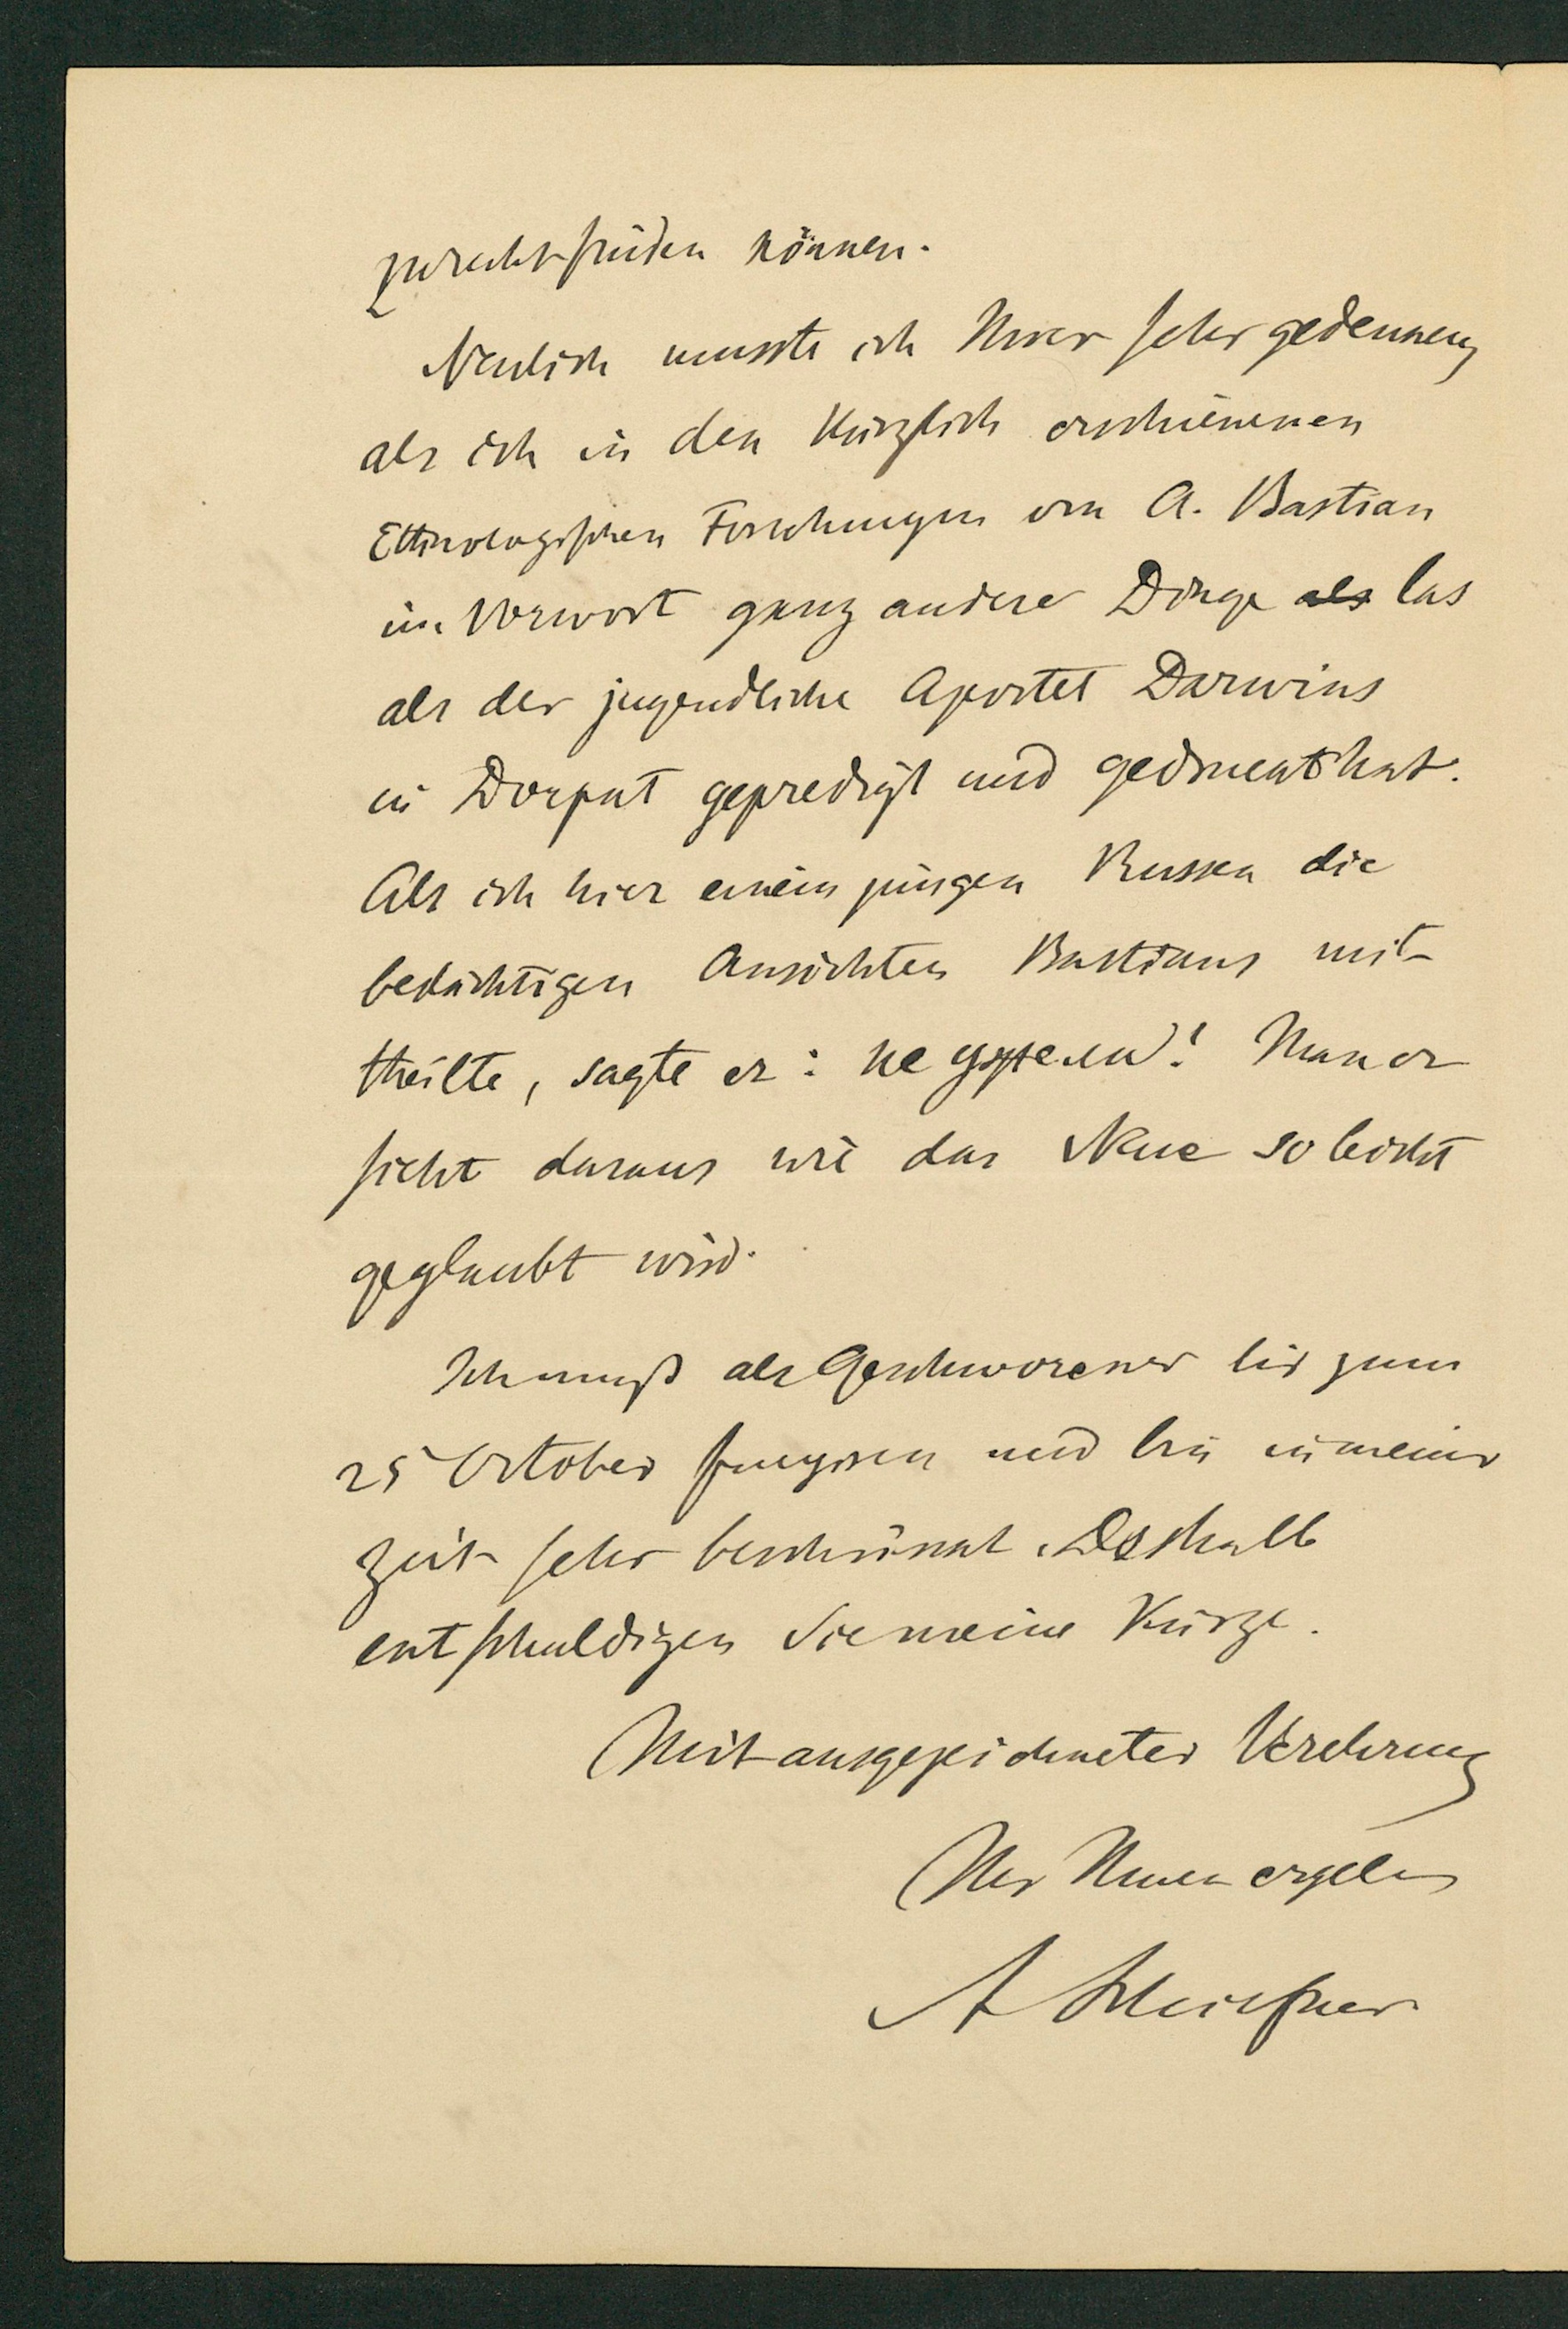 zurechtfinden können.
Neulich musste ich Ihrer sehr gedenken,
als ich in den kürzlich erschienenen
Ethnologischen Forschungen von A. Bastian
im Vorwort ganz andere Dinge als las
als der jugendliche Apostel Darwins
in Dorpat gepredigt und gedruckt hat.
Als ich hier einem jungen Russen die
bedächtigen Ansichten Bastians mit-
theilte, sagte er: не ужели! Man er
sieht daraus wie das Neue so leicht
geglaubt wird.
Ich muß als Geschworener bis zum
25 October fungiren und bin in meiner
Zeit sehr beschränkt. Deshalb
entschuldigen Sie meine Kürze.
Mit ausgezeichneter Verehrung
Ihr Ihnen ergeben
A Schiefner